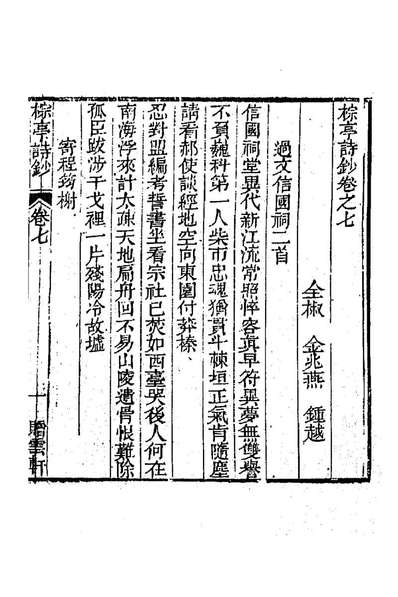 棕亭詩鈔卷之七
全椒 金兆燕 鍾越
過文信國祠二首
信國祠堂異代新江流常照悴容真早符異夢無雙譽
不負巍科第一人柴市忠魂猶貫斗棘垣正氣肯隨塵
請看郝使談經地空向東園付莽榛
忍對盟編考誓書坐看宗社已焚如西臺哭後人何在
南海浮來計太疎天地扁舟回不易山陵遺骨恨難除
孤臣跋涉干戈裡一片殘陽冷故墟
寄程筠榭
棕亭詩鈔 卷七 一 贈雲軒